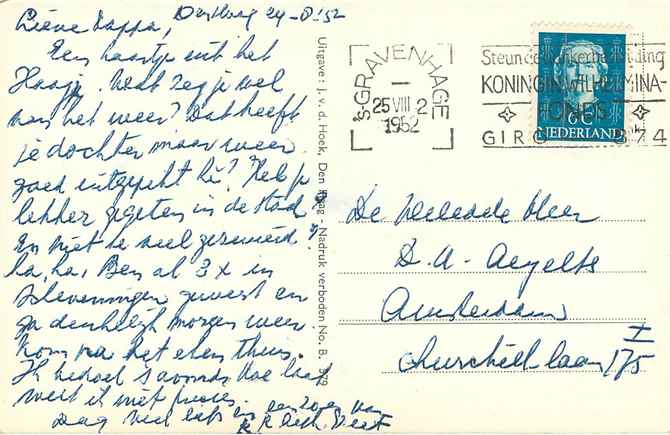 Lieve Pappa, Den Haag 24-8-'52
Een kaartje uit het
Haagje. Wat zeg je wel
van het weer? Dat heeft
je dochter maar weer
goed uitgepikt hè? Heb je
lekker gegeten in de stad
En niet te veel
ha, ha, Ben al 3 x in
Scheveningen geweest en
ga denkelijk morgen weer
kom na het eten thuis.
Ik bedoel s avonds hoe laat
weet ik niet precies.
Dag veel liefs en een zoen van
Uitgave: J. v. d. Hoek, Den Haag - Nadruk verboden No. B.
'S-GRAVENHAGE
25 VIII 2
1952
Steunt de Kankerbestrijding
KONINGIN WILHELMINA-
FONDS
GIRO 874
6c
NEDERLAND
De Weledele Heer
D. A. Aegelts
Amsterdam
Churchill laan 175 I